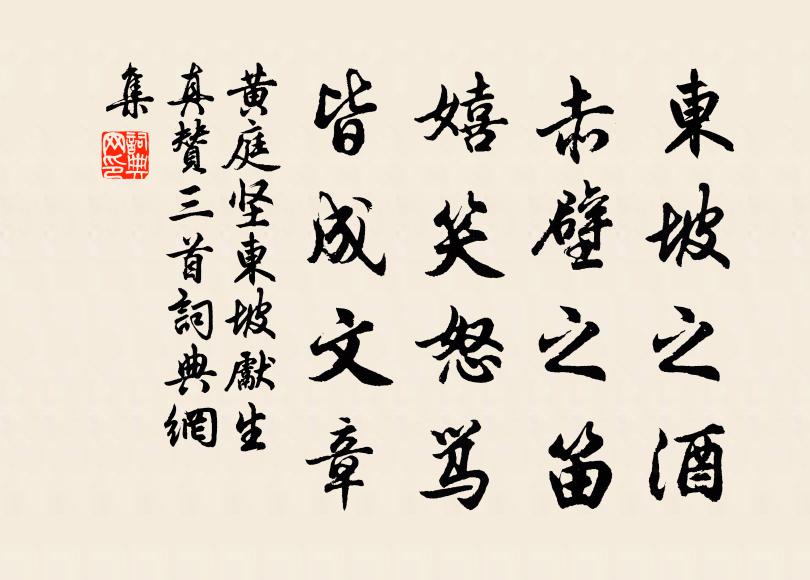 東坡之酒
赤壁之笛
嬉笑怒骂
皆成文章
黄庭坚東坡獻生
真贊三首詞典網
集
詞典网印